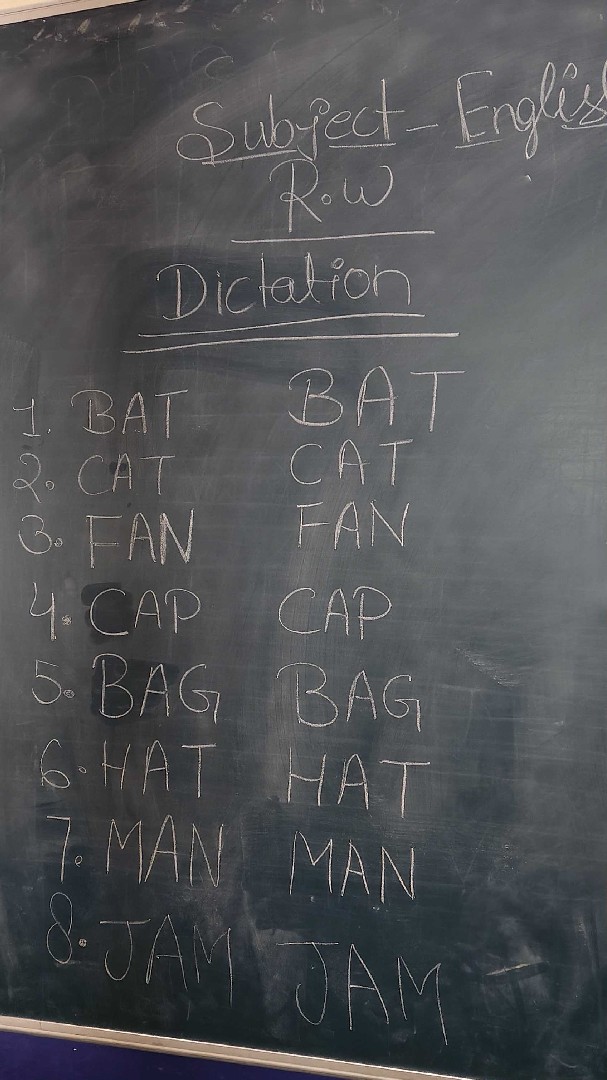 Subject - English
R.W
Dictation
1. BAT BAT
2. CAT CAT
3. FAN FAN
4. CAP CAP
5. BAG BAG
6. HAT HAT
7. MAN MAN
8. JAM JAM